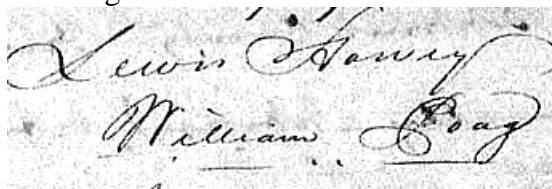 Lewis Howey
William Poag